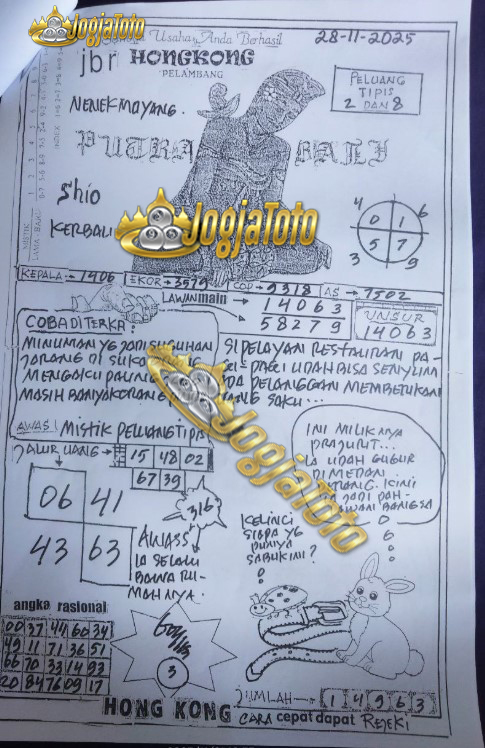 JogjaToto
Semoga Usaha Anda Berhasil
28-11-2025
jbr HONGKONG
PELAMBANG
PELUANG
TIPIS
2 DAN 8
NENEK MOYANG.
PUTRA BALI
Shio
KERBAU
4 0 1 6
3 5 7 9
JogjaToto
KEPALA → 1906 EKOR → 3579 COP → 9318 AS → 7502
LAWAN main → 14063
58279
UNSUR
14063
COBA DITERKA:
MINUMAN YG JADI SUGUHAN
JARANG DI SUKO
MENGAKU PALING
MASIH BANYAK ORANG
SI PELAYAN RESTAURAN PA-
UDAH BISA SENYUM
PELANGGAN MEMBERIKAN
UANG SAKU...
AWAS! MISTIK PELUANG TIPIS
JALUR UANG →
15 48 02
67 39
06 41
43 63
316
AWASS
IA SELALU
BAWA RU-
MAHNYA.
JogjaToto
INI MILIKNYA
PRAJURIT...
IA UDAH GUGUR
DI MEDAN
KINI
IA JADI PAH-
LAWAN BANGSA
KELINCI
SIAPA YG
PUNYA
SABUK INI?
angka rasional
00 37 44 60 34
49 11 71 36 51
66 70 33 14 93
20 84 76 09 17
3
JUMLAH → 1 4 9 6 3
HONG KONG CARA cepat dapat REJEKI